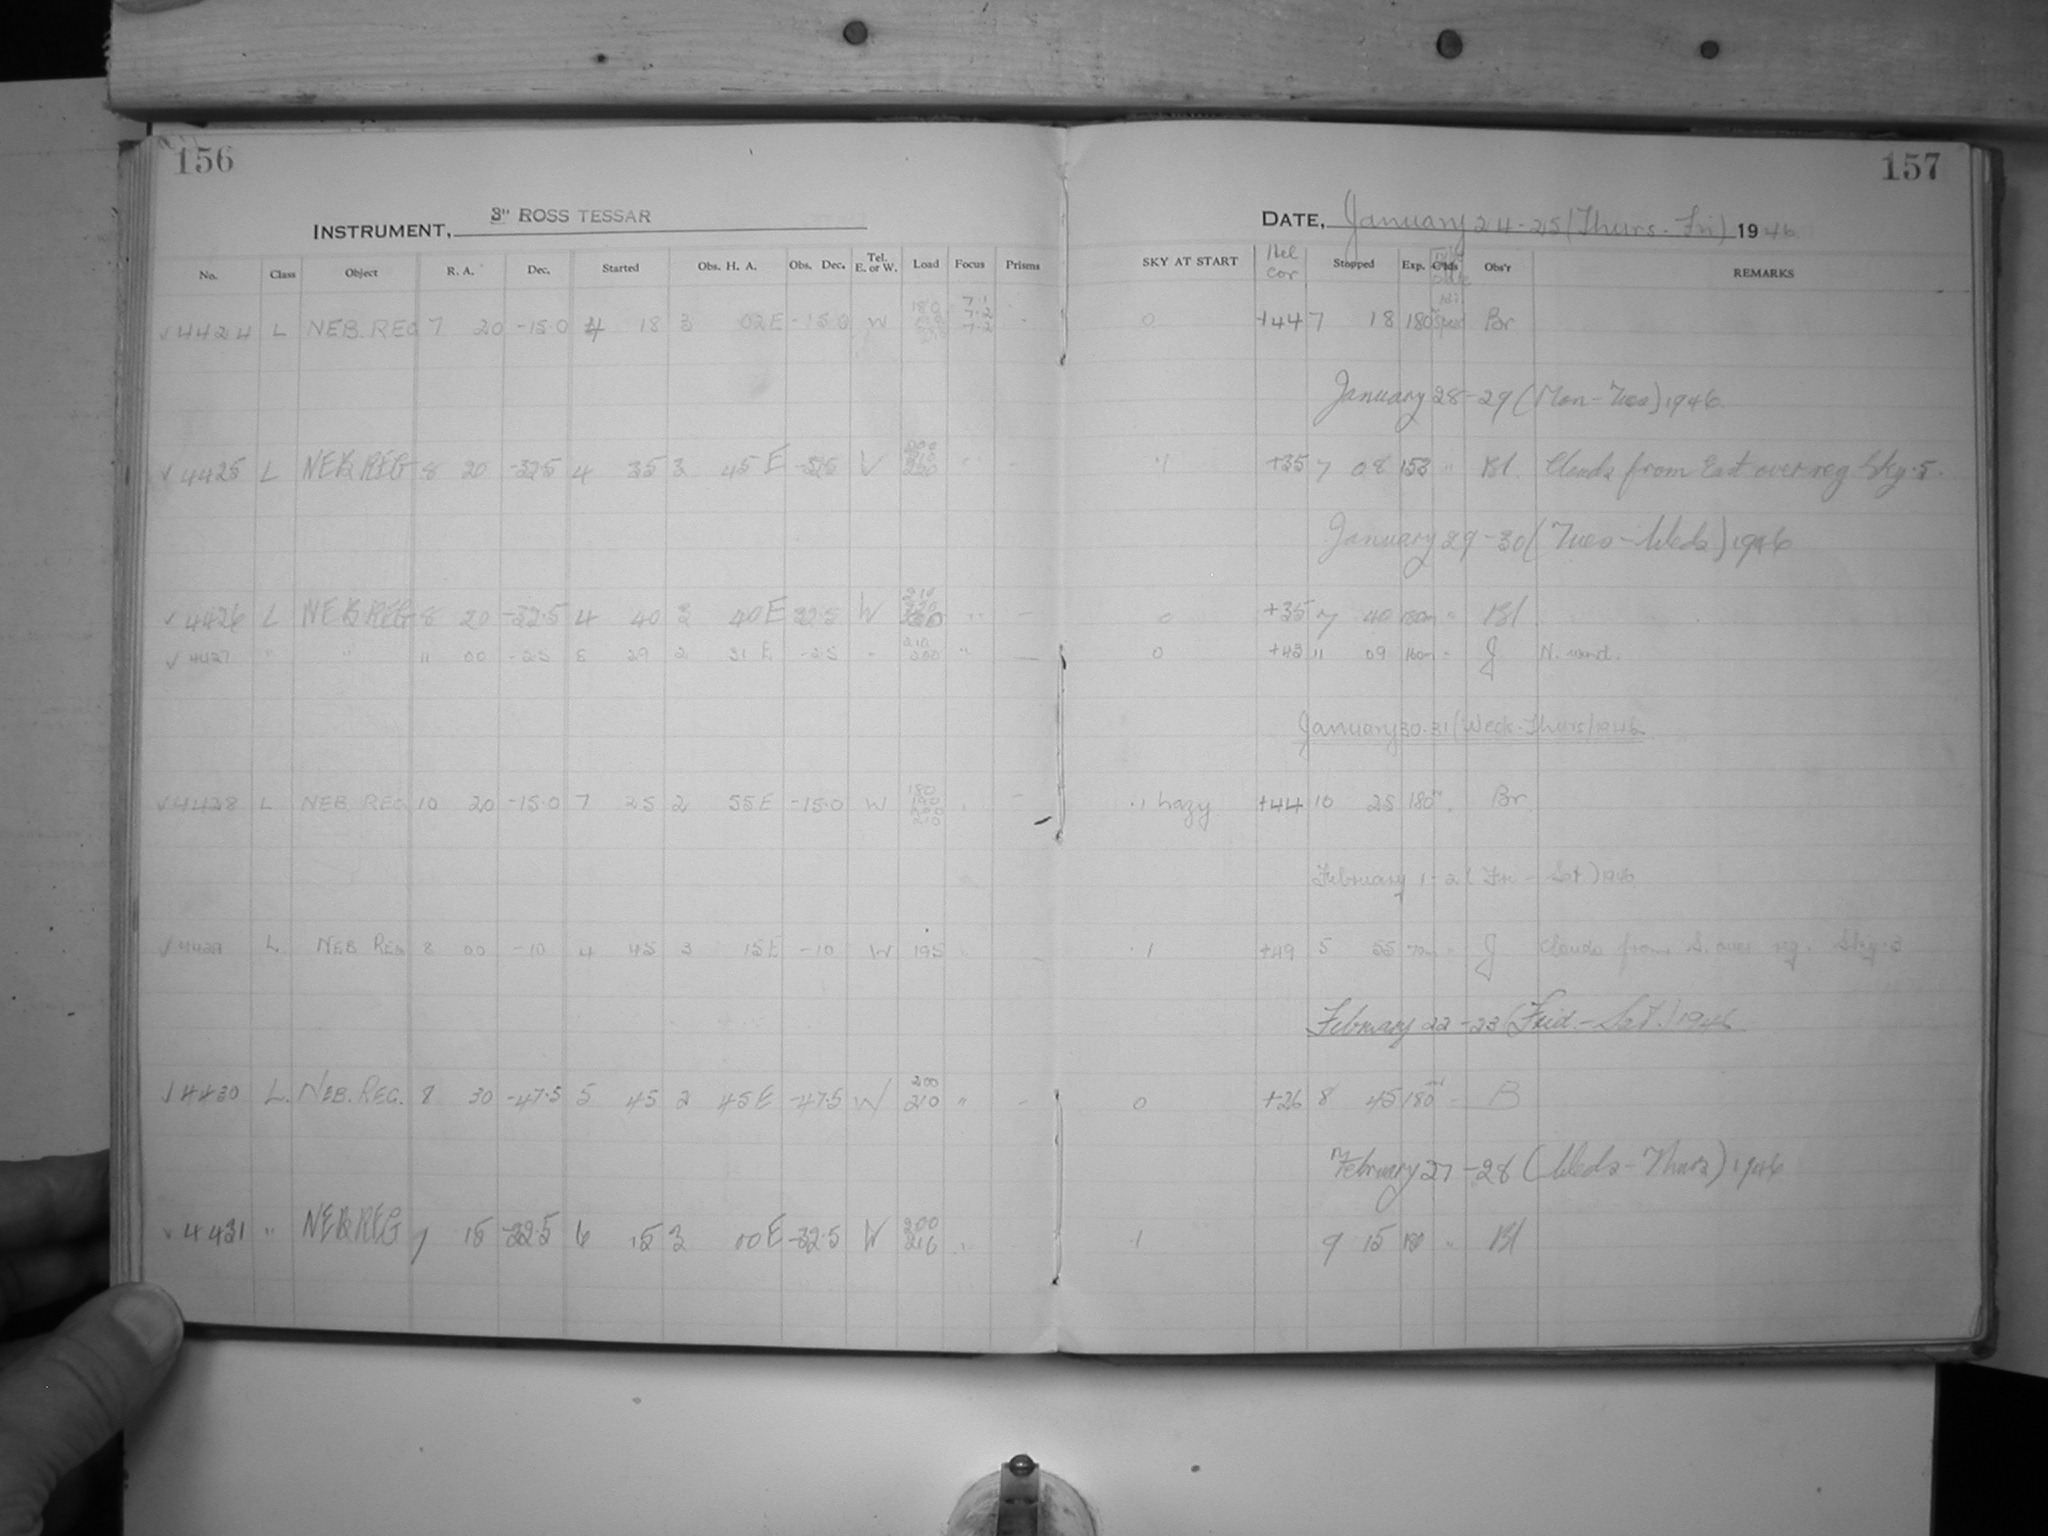 156
157
INSTRUMENT, 3" ROSS TESSAR
DATE, January 24-25 (Thurs-Fri) 1946
No. Class Object R. A. Dec. Started Obs. H. A. Obs. Dec. Tel. E. or W. Load Focus Prisms SKY AT START Hel cor Stopped Exp. Obs'r REMARKS
√4424 L NEB. REG 7 20 -15.0 4 18 3 02E -15.0 W 7.1 7.2 7.2 0 +44 7 18 180 Br
January 28-29 (Mon-Tues) 1946
√4425 L NEB REG 8 20 -32.5 4 35 3 45E W 200 210 - .1 +35 7 08 153 " Bl. Clouds from East over reg. Sky .5.
January 29-30 (Tues-Weds) 1946
√4426 L NEB REG 8 20 -32.5 4 40 3 40E 32.5 W 210 " - 0 +35 7 40 180m " Bl
√4427 " " 11 00 -25 8 29 2 31E -25 " 210 200 " - 0 +43 11 09 160m " J N. wind.
January 30-31 (Weds-Thurs) 1946
√4428 L NEB. REG. 10 20 -15.0 7 25 2 55E -15.0 W 180 - .1 hazy +44 10 25 180m " Br
February 1-2 (Fri-Sat) 1946
√4429 L. NEB REG 8 00 -10 4 45 3 15E -10 W 195 " - .1 +49 5 55 70m " J Clouds from S. over reg. Sky .3
February 22-23 (Frid.-Sat.) 1946
√4430 L. NEB. REG. 8 30 -47.5 5 45 2 45E -47.5 W 200 210 " - 0 +26 8 45 180m " B
February 27-28 (Weds-Thurs) 1946
√4431 " NEB REG 7 15 -32.5 6 15 3 00E -32.5 W 200 216 " .1 9 15 180 " Bl